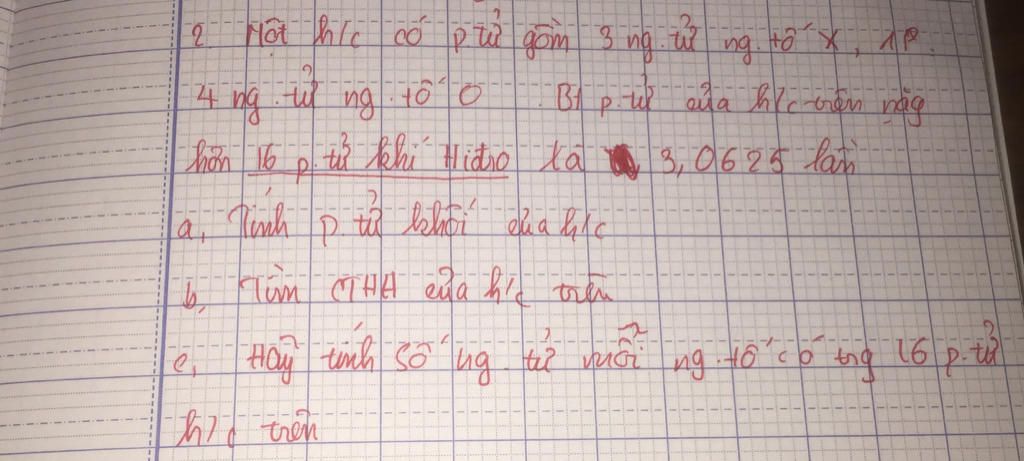 2. Một h/c có p.tử gồm 3 ng.tử ng.tố X, 1P.
4 ng.tử ng.tố O. Bt p.tử của h/c trên nặg
hơn 16 p.tử khí Hiđro là 3,0625 lần
a, Tính p.tử khối của h/c
b, Tìm CTHH của h/c trên
c, Hãy tính số ng.tử mỗi ng.tố có trg 16 p.tử
h/c trên